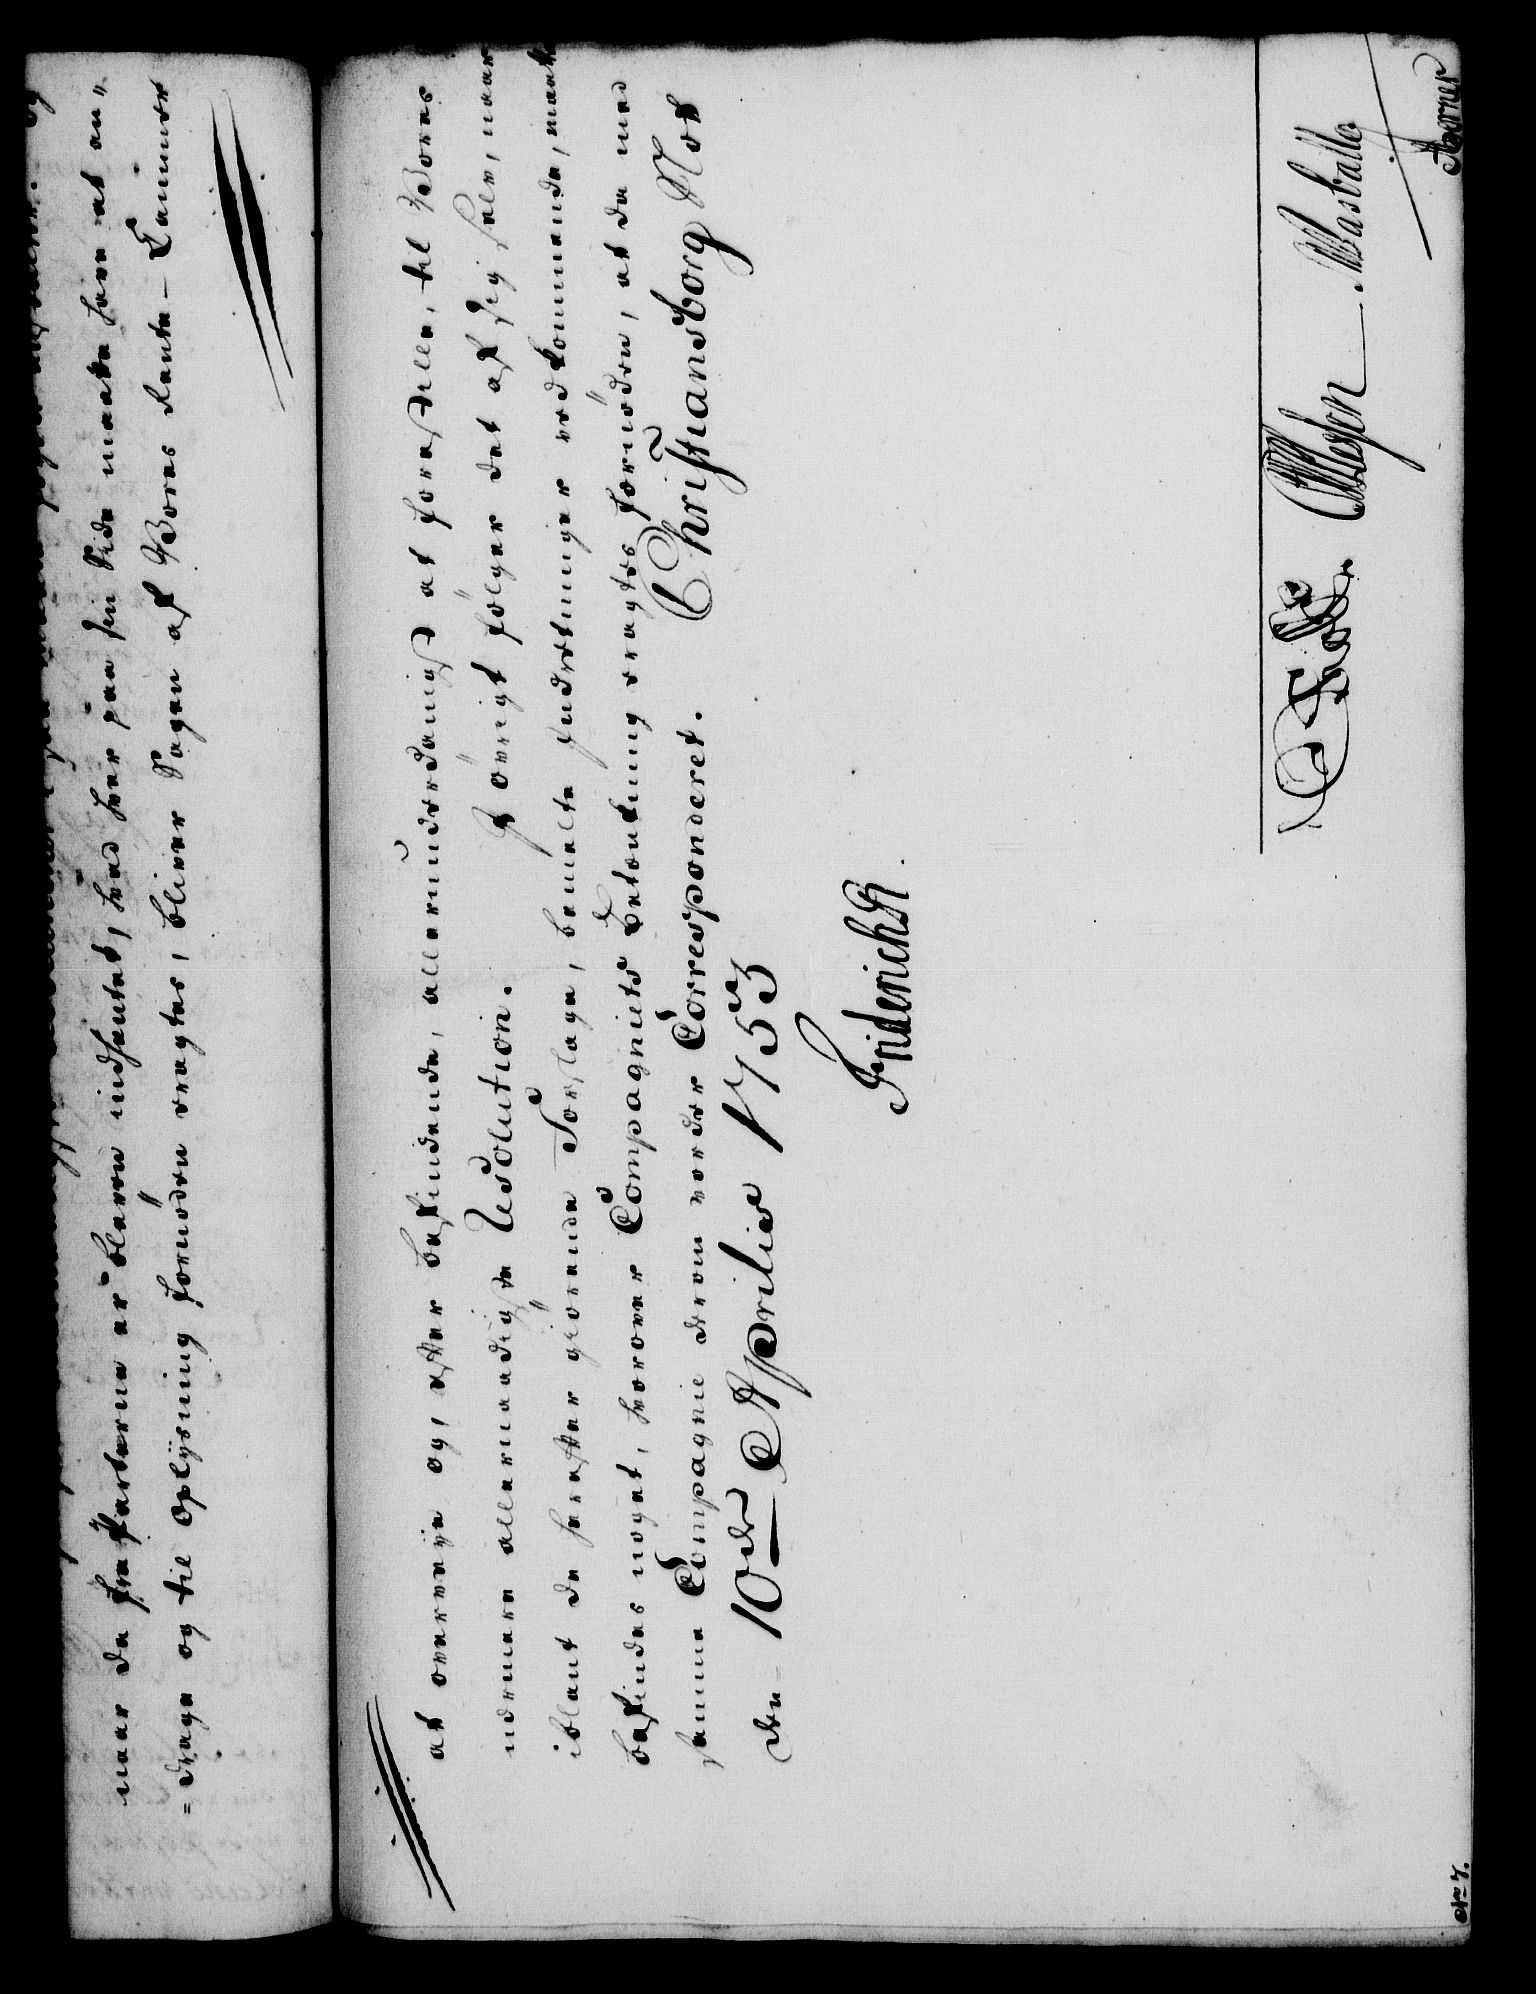 naar de fra Parterne er bleven indhentet, hvad hver paa sin Side maatte have at an„
=drage og til Oplÿsning fornøden eragtes, bliver Sagen af Vores Rente-Cammer
at overveÿe og, efter befindende, allerunderdanigst at forestilles, til Vores
nærmere allernaadigste Resolution. I øvrigt følger det af sig selv, naar
iblant de herefter giørende Forslage, bemelte Indretninger vedkommende, maatte
befindes noget, hvorover Compagniets Betænkning eragtes fornøden, at da med
samme Compagnie derom vorder Correponderet. Christiansborg Slot
den 10de Aprilis 1753
Friderich R.
Holst Ottesen Wasballe
Berner
No 7.